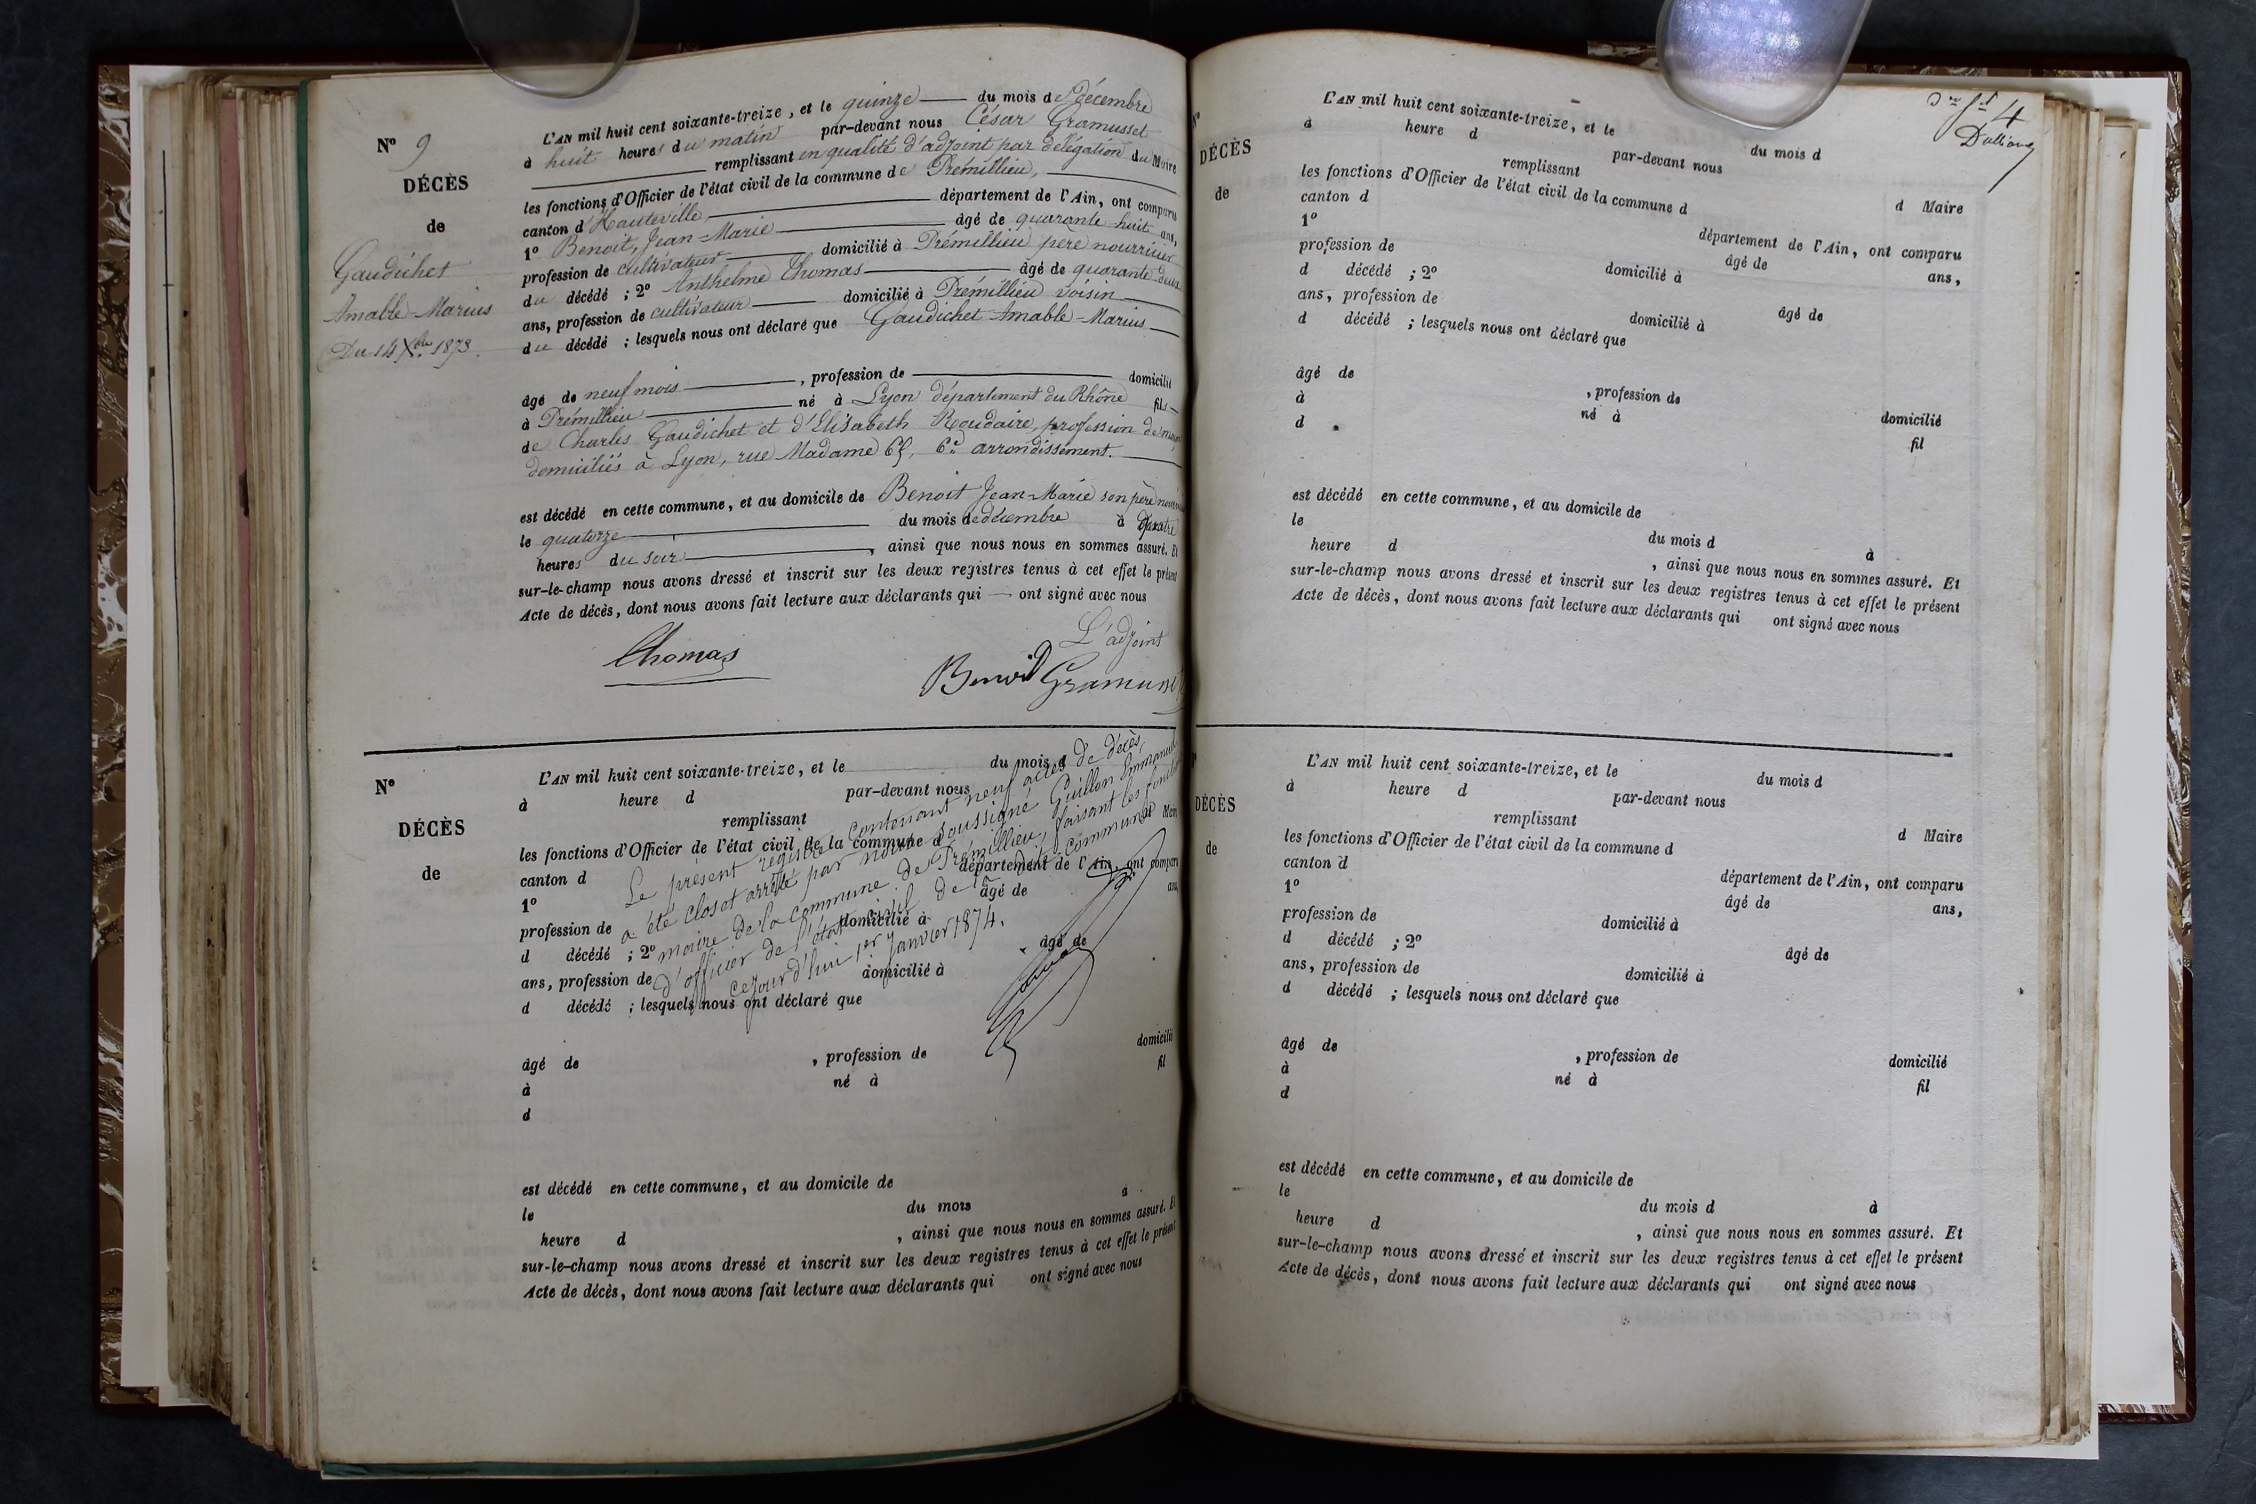 N° 9
DÉCÈS
de
Gaudichet
Amable-Marius
Du 14 Xbre 1873.
L'AN mil huit cent soixante-treize, et le quinze du mois de décembre
à huit heures du matin par-devant nous César Gramusset
remplissant en qualité d'adjoint par délégation du Maire
les fonctions d'Officier de l'état civil de la commune de Prémillieu,
canton d'Hauteville, département de l'Ain, ont comparu
1° Benoit, Jean-Marie âgé de quarante huit ans,
profession de cultivateur domicilié à Prémillieu père nourricier
du décédé ; 2° Anthelme Thomas âgé de quarante deux
ans, profession de cultivateur domicilié à Prémillieu voisin
du décédé ; lesquels nous ont déclaré que Gaudichet Amable-Marius
âgé de neuf mois, profession de domicilié
à Prémillieu né à Lyon département du Rhône fils
de Charles Gaudichet et d'Elisabeth Roudaire, profession de
domiciliés à Lyon, rue Madame 65, 6e arrondissement.
est décédé en cette commune, et au domicile de Benoit Jean-Marie son père
le quatorze du mois de décembre à quatre
heures du soir, ainsi que nous nous en sommes assuré. Et
sur-le-champ nous avons dressé et inscrit sur les deux registres tenus à cet effet le présent
Acte de décès, dont nous avons fait lecture aux déclarants qui ont signé avec nous
L'adjoint
Thomas
Benoit Gramusset
N°
DÉCÈS
de
L'AN mil huit cent soixante-treize, et le du mois d
à heure d par-devant nous
remplissant d Maire
les fonctions d'Officier de l'état civil de la commune d
canton d département de l'Ain, ont comparu
1° âgé de ans,
profession de domicilié à
d décédé ; 2° âgé de
ans, profession de domicilié à
d décédé ; lesquels nous ont déclaré que
Le présent registre contenant neuf actes de décès,
a été clos et arrêté par nous soussigné Guillon Emmanuel
maire de la commune de Prémillieu, faisant les fonctions
d'officier de l'état civil de la dite commune
cejourd'hui 1er Janvier 1874.
âgé de , profession de domicilié
à né à fil
d
est décédé en cette commune, et au domicile de
le du mois à
heure d , ainsi que nous nous en sommes assuré. Et
sur-le-champ nous avons dressé et inscrit sur les deux registres tenus à cet effet le présent
Acte de décès, dont nous avons fait lecture aux déclarants qui ont signé avec nous
4
DÉCÈS
de
L'AN mil huit cent soixante-treize, et le du mois d
à heure d par-devant nous
remplissant d Maire
les fonctions d'Officier de l'état civil de la commune d
canton d département de l'Ain, ont comparu
1° âgé de ans,
profession de domicilié à
d décédé ; 2° âgé de
ans, profession de domicilié à
d décédé ; lesquels nous ont déclaré que
âgé de , profession de domicilié
à né à fil
d
est décédé en cette commune, et au domicile de
le du mois d à
heure d , ainsi que nous nous en sommes assuré. Et
sur-le-champ nous avons dressé et inscrit sur les deux registres tenus à cet effet le présent
Acte de décès, dont nous avons fait lecture aux déclarants qui ont signé avec nous
DÉCÈS
de
L'AN mil huit cent soixante-treize, et le du mois d
à heure d par-devant nous
remplissant d Maire
les fonctions d'Officier de l'état civil de la commune d
canton d département de l'Ain, ont comparu
1° âgé de ans,
profession de domicilié à
d décédé ; 2° âgé de
ans, profession de domicilié à
d décédé ; lesquels nous ont déclaré que
âgé de , profession de domicilié
à né à fil
d
est décédé en cette commune, et au domicile de
le du mois d à
heure d , ainsi que nous nous en sommes assuré. Et
sur-le-champ nous avons dressé et inscrit sur les deux registres tenus à cet effet le présent
Acte de décès, dont nous avons fait lecture aux déclarants qui ont signé avec nous